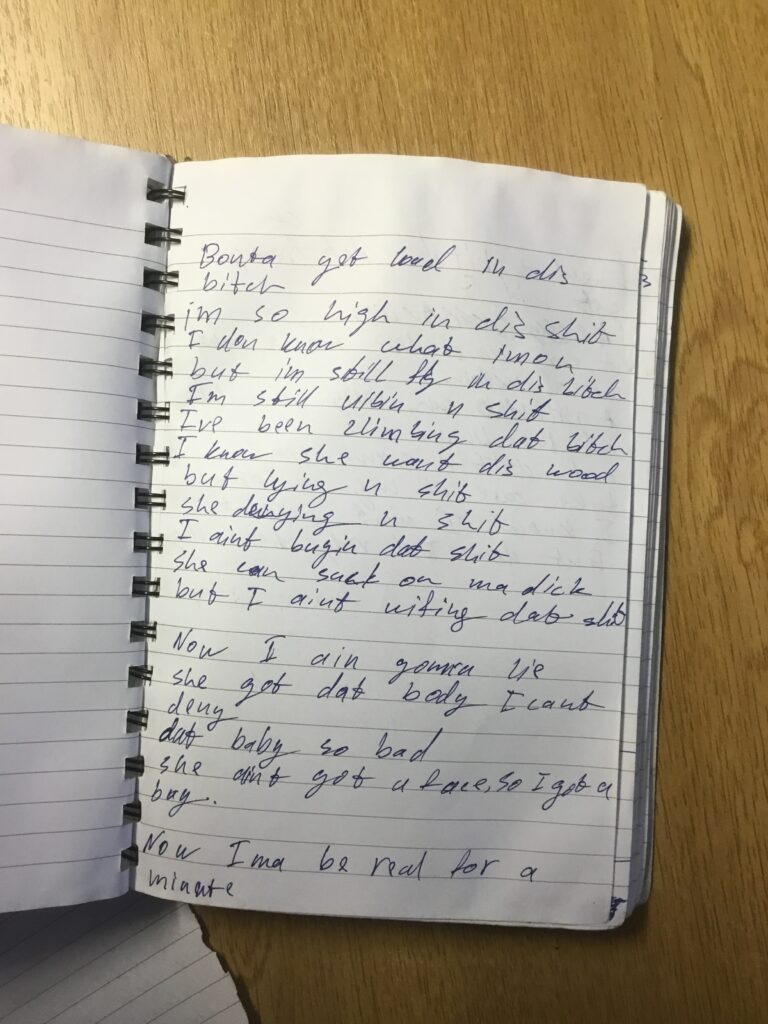 Bouta get loud in dis
bitch
im so high in dis shit
I don know what imon
but im still fly in dis bitch
I'm still vibin n shit
I've been climbing dat bitch
I know she want dis wood
but lying n shit
she denying n shit
I aint buyin dat shit
she can suck on ma dick
but I aint wifing dat shit
Now I ain gonna lie
she got dat body I cant
deny
dat baby so bad
she aint got a face, so I got a
bag.
Now Ima be real for a
minute